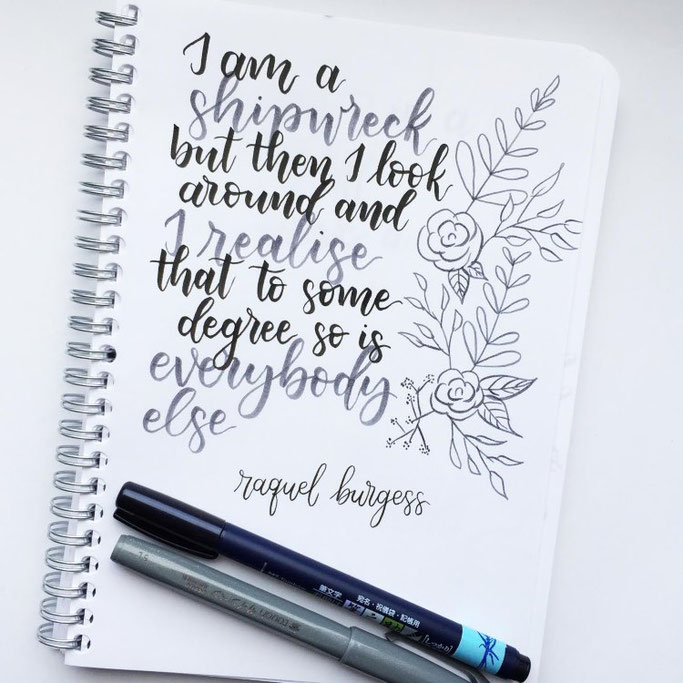 I am a
shipwreck
but then I look
around and
I realise
that to some
degree so is
everybody
else
raquel burgess
筆文字 宛名・祝儀袋・記帳用
[しっかり]